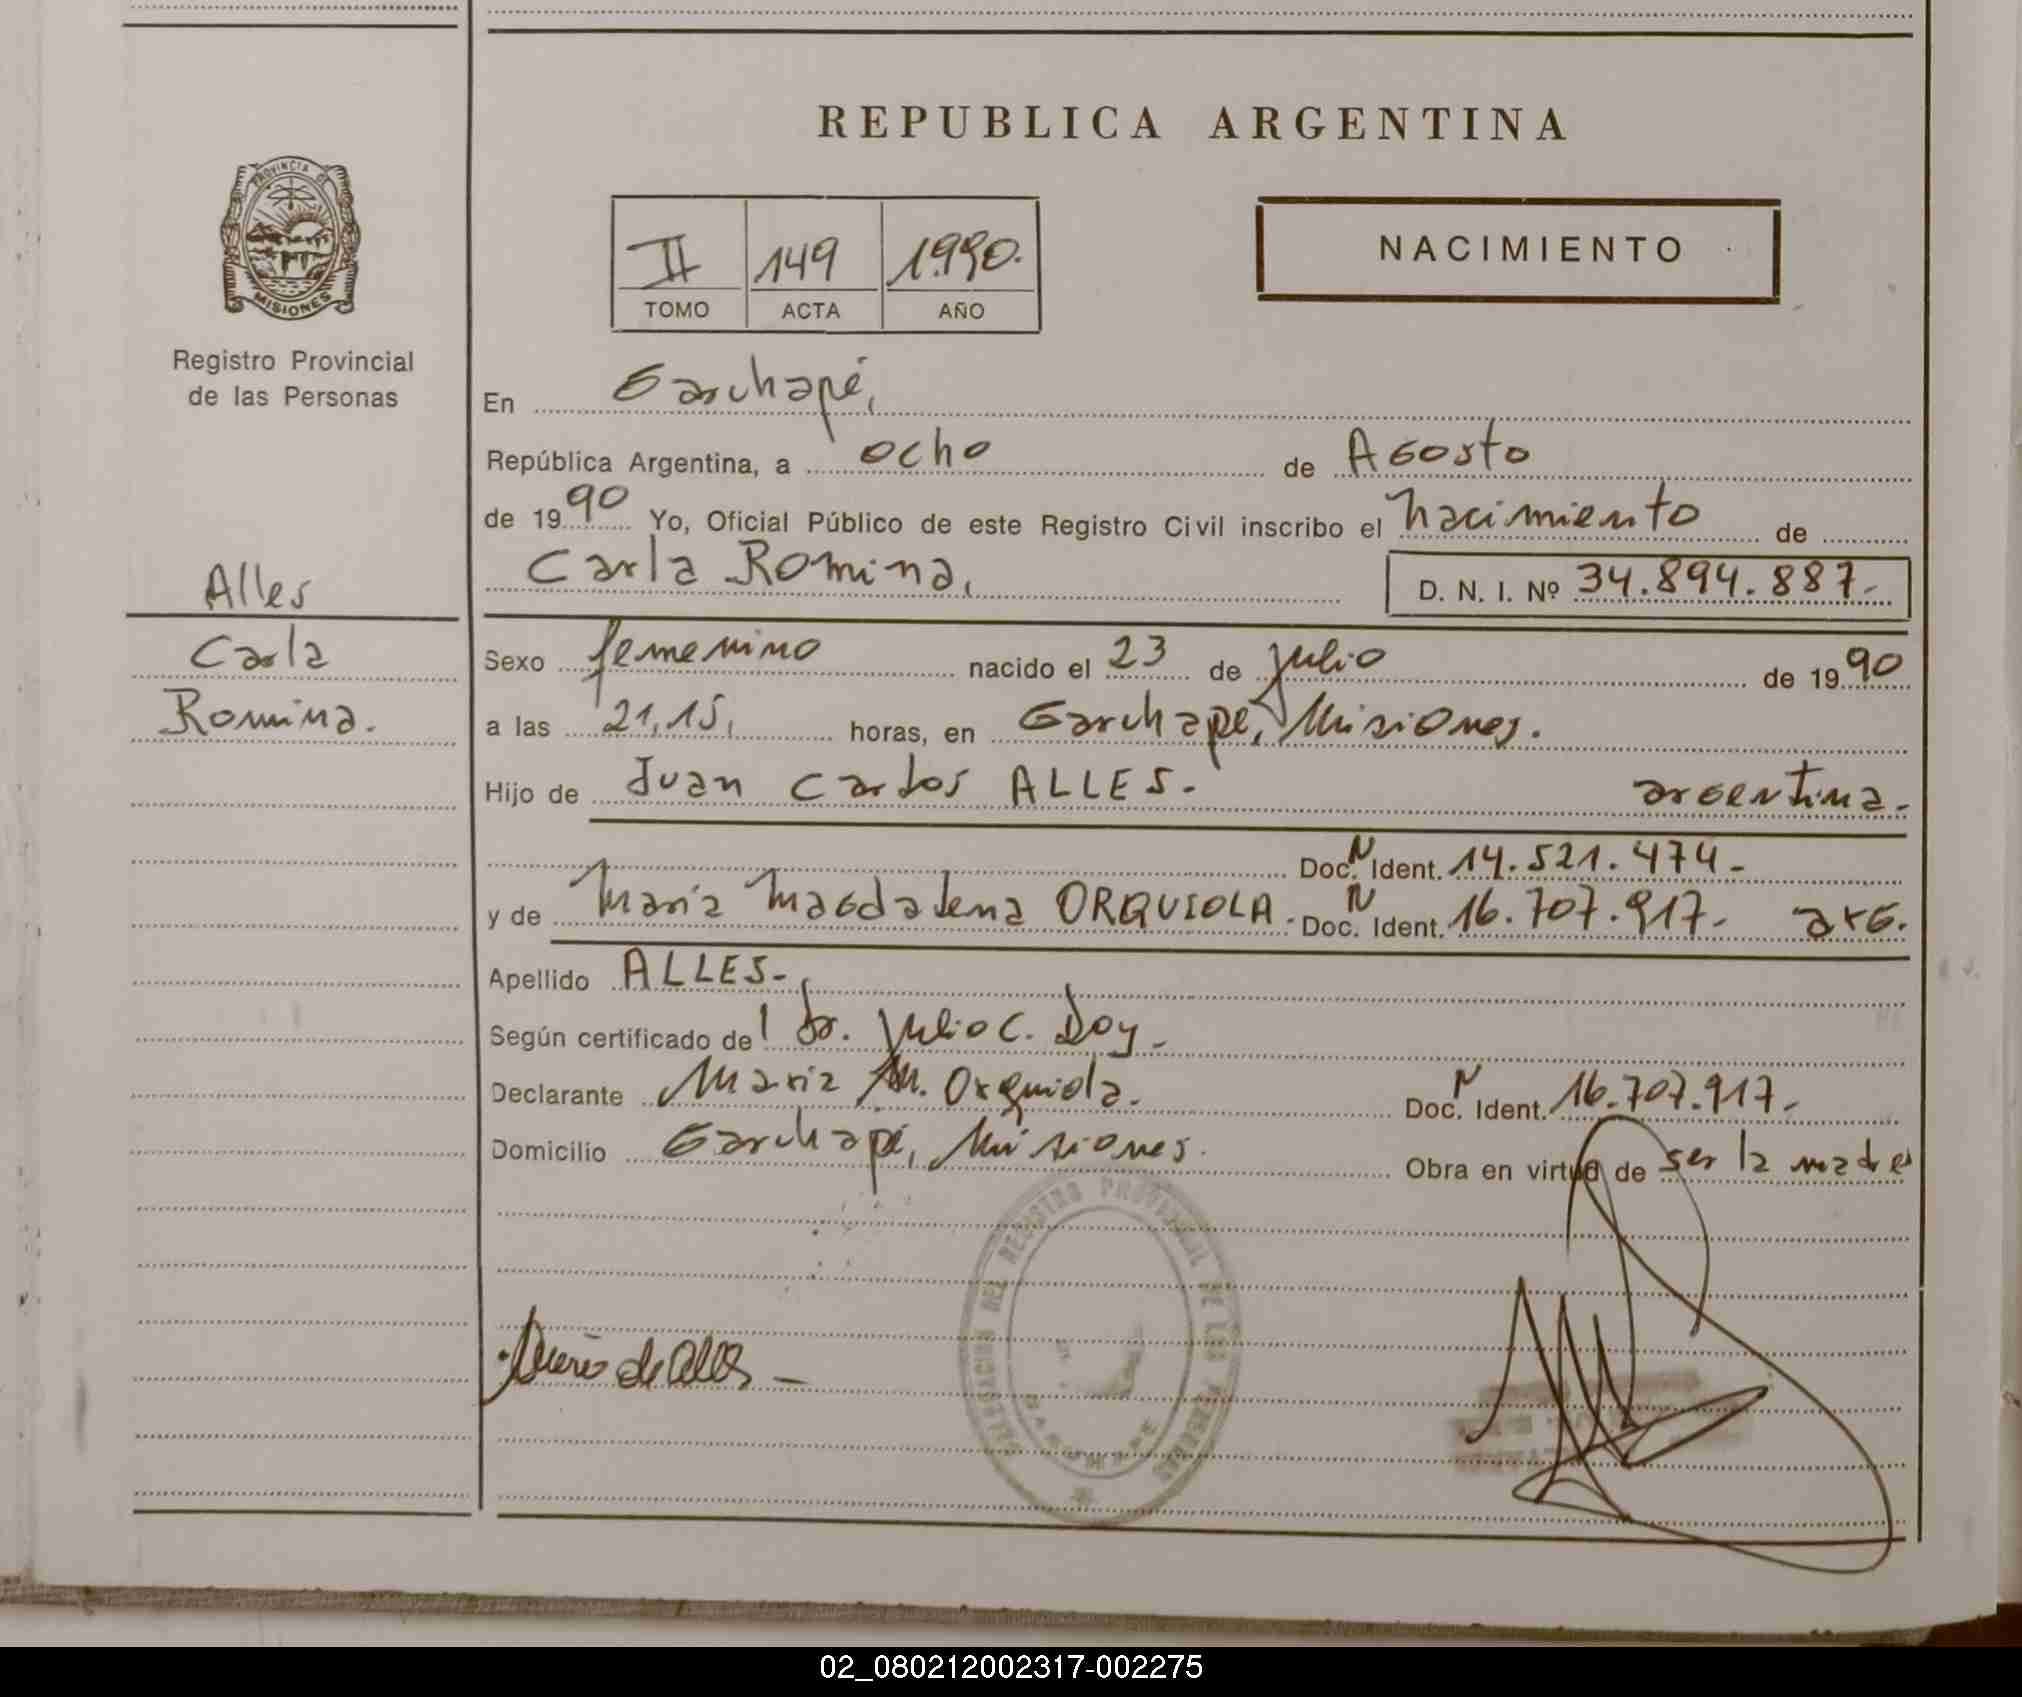 REPUBLICA ARGENTINA
PROVINCIA DE MISIONES
Registro Provincial
de las Personas
II 149 1.990.
TOMO ACTA AÑO
NACIMIENTO
En Garuhapé,
República Argentina, a ocho de Agosto
de 1990 Yo, Oficial Público de este Registro Civil inscribo el nacimiento de
Carla Romina, D. N. I. Nº 34.894.887.-
Alles
Carla
Romina.
Sexo femenino nacido el 23 de julio de 1990
a las 21,15, horas, en Garuhapé, Misiones.
Hijo de Juan Carlos ALLES. argentina.
Doc. N Ident. 14.521.474-
y de María Magdalena ORQUIOLA. Doc. N Ident. 16.707.917- arg.
Apellido ALLES-
Según certificado del Dr. Julio C. Doy-
Declarante María M. Orquiola. Doc. N Ident. 16.707.917.-
Domicilio Garuhapé, Misiones. Obra en virtud de ser la madre
DELEGACION DEL REGISTRO PROVINCIAL DE LAS PERSONAS
GARUHAPE
de Alles -
02_080212002317-002275